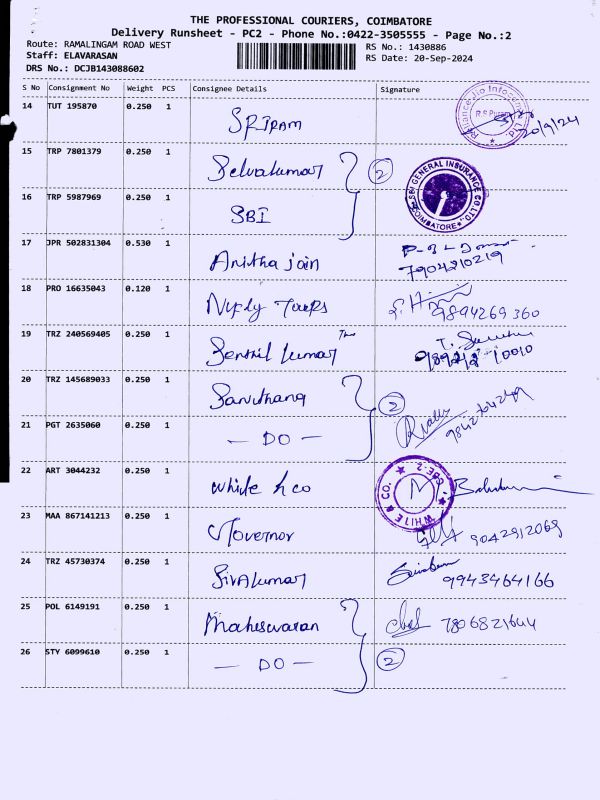 THE PROFESSIONAL COURIERS, COIMBATORE
Delivery Runsheet - PC2 - Phone No.:0422-3505555 - Page No.:2
Route: RAMALINGAM ROAD WEST
RS No.: 1430886
Staff: ELAVARASAN
RS Date: 20-Sep-2024
DRS No.: DCJB143088602
S No Consignment No Weight PCS Consignee Details Signature
14 TUT 195870 0.250 1 SRIRAM 20/9/24
15 TRP 7801379 0.250 1 Selvakumar 2
SBI GENERAL INSURANCE CO.LTD. COIMBATORE
16 TRP 5987969 0.250 1 SBI
17 JPR 502831304 0.530 1 Anitha jain
7904210219
18 PRO 16635043 0.120 1 Tours 9894269360
19 TRZ 240569405 0.250 1 Senthil kumar
20 TRZ 145689033 0.250 1 2
21 PGT 2635060 0.250 1 — DO —
22 ART 3044232 0.250 1 white & co WHITE & CO. CBE-2
23 MAA 867141213 0.250 1 Governor 9042912069
24 TRZ 45730374 0.250 1 Sivakumar 9943464166
25 POL 6149191 0.250 1 Maheswaran 7806821644
26 STY 6099610 0.250 1 — DO — 2